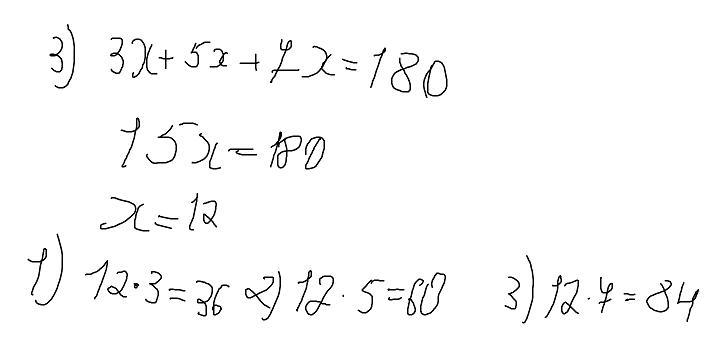 3) 3x+5x+7x=180
15x=180
x=12
1) 12·3=36 2) 12·5=60 3) 12·7=84